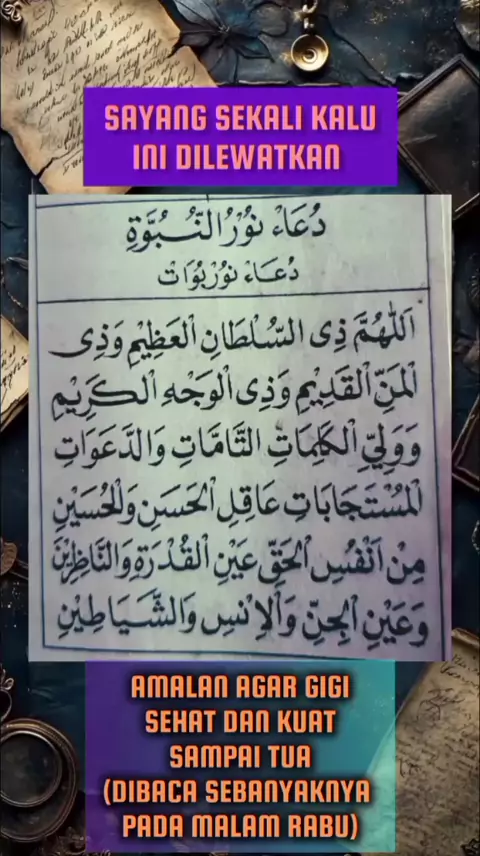 SAYANG SEKALI KALU
INI DILEWATKAN
دُعَاءْ نُوْرُ النُّبُوَّةِ
دُعَاءْ نُوْرْبُوَاتْ
اَللّٰهُمَّ ذِى السُّلْطَانِ الْعَظِيْمِ وَذِى
الْمَنِّ الْقَدِيْمِ وَذِى الْوَجْهِ الْكَرِيْمِ
وَوَلِيِّ الْكَلِمَاتِ التَّامَّاتِ وَالدَّعَوَاتِ
الْمُسْتَجَابَاتِ عَاقِلِ الْحَسَنِ وَالْحُسَيْنِ
مِنْ اَنْفُسِ الْحَقِّ عَيْنِ الْقُدْرَةِ وَالنَّاظِرِيْنَ
وَعَيْنِ الْجِنِّ وَالْاِنْسِ وَالشَّيَاطِيْنِ
AMALAN AGAR GIGI
SEHAT DAN KUAT
SAMPAI TUA
(DIBACA SEBANYAKNYA
PADA MALAM RABU)